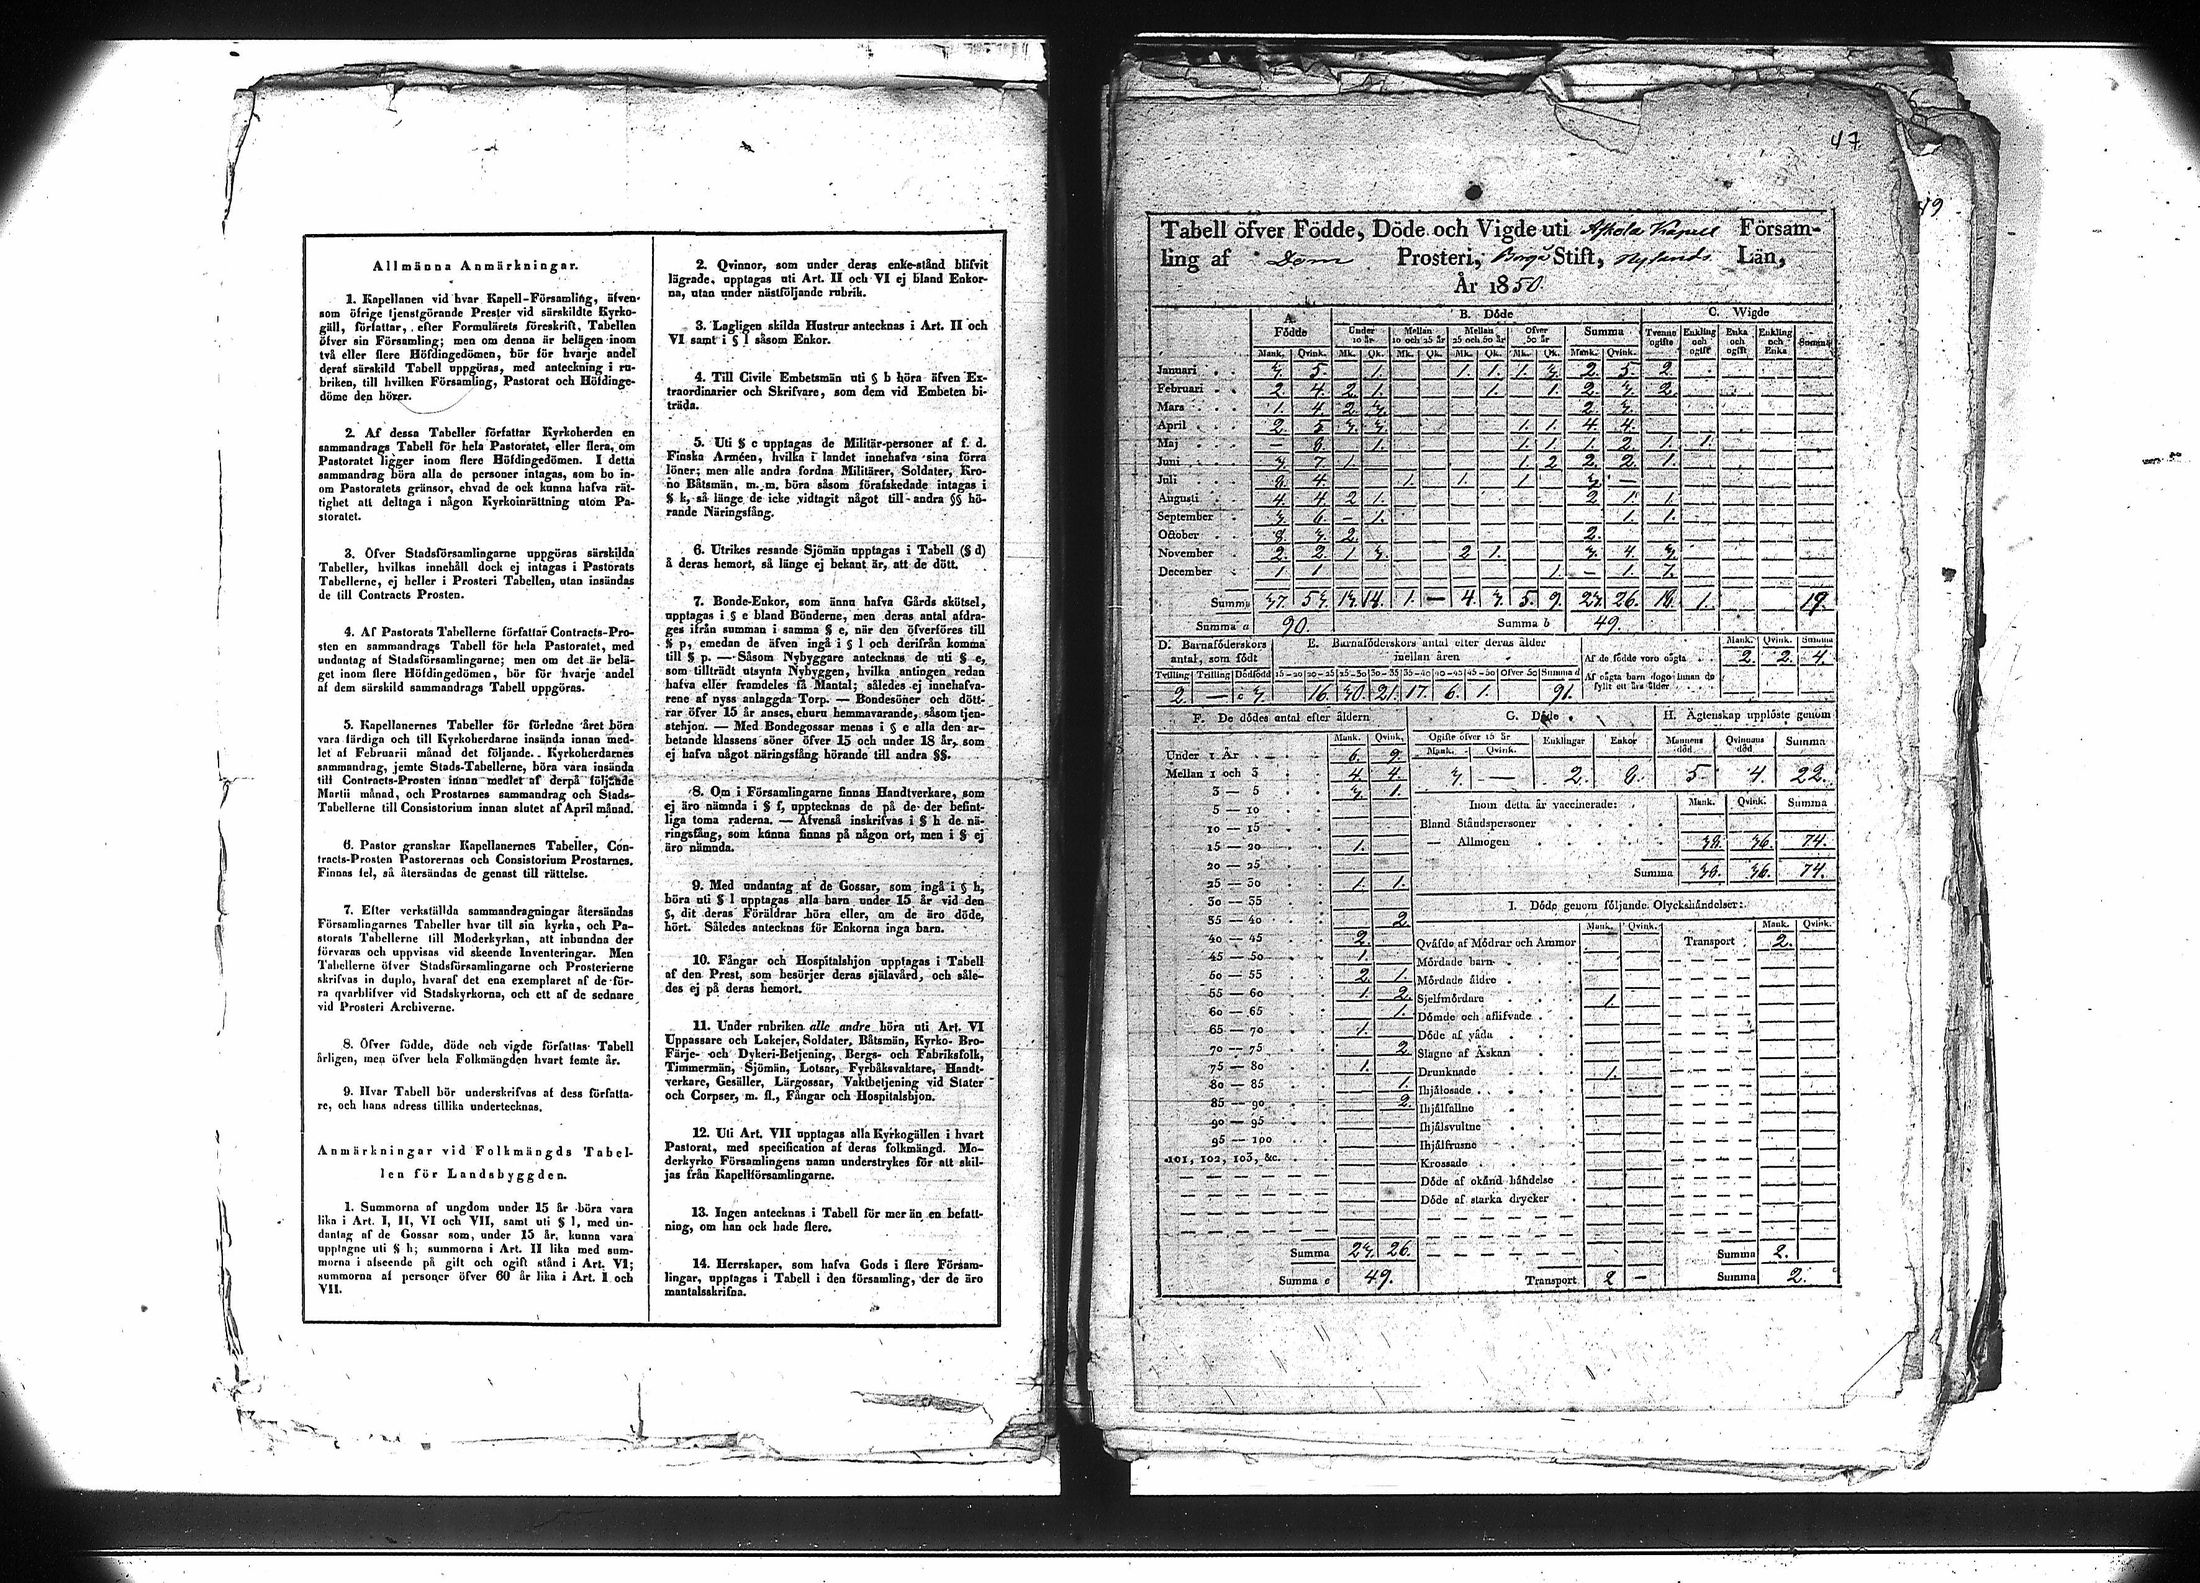 Allmänna Anmärkningar.
1. Kapellanen vid hvar Kapell-Församling, äfven-
som öfrige tjenstgörande Prester vid särskildte Kyrko-
gäll, författar, efter Formulärets föreskrift, Tabellen
öfver sin Församling; men om denna är belägen inom
två eller flere Höfdingedömen, bör för hvarje andel
deraf särskild Tabell uppgöras, med anteckning i ru-
briken, till hvilken Församling, Pastorat och Höfdinge-
döme den hörer.
2. Af dessa Tabeller författar Kyrkoherden en
sammandrags Tabell för hela Pastoratet, eller flera, om
Pastoratet ligger inom flere Höfdingedömen. I detta
sammandrag böra alla de personer intagas, som bo in-
om Pastoratets gränsor, ehvad de ock kunna hafva rät-
tighet att deltaga i någon Kyrkoinrättning utom Pa-
storatet.
3. Öfver Stadsförsamlingarne uppgöras särskilda
Tabeller, hvilkas innehåll dock ej intages i Pastorats
Tabellerne, ej heller i Prosteri Tabellen, utan insändas
de till Contracts Prosten.
4. Af Pastorats Tabellerne författar Contracts-Pro-
sten en sammandrags Tabell för hela Pastoratet, med
undantag af Stadsförsamlingarne; men om det är belä-
get inom flere Höfdingedömen, bör för hvarje andel
af dem särskild sammandrags Tabell uppgöras.
5. Kapellanernes Tabeller för förledne året böra
vara färdiga och till Kyrkoherdarne insända innan med-
let af Februarii månad det följande. Kyrkoherdarnes
sammandrag, jemte Stads-Tabellerne, böra vara insända
till Contracts-Prosten innan medlet af derpå följande
Martii månad, och Prostarnes sammandrag och Stads-
Tabellerne till Consistorium innan slutet af April månad.
6. Pastor granskar Kapellanernes Tabeller, Con-
tracts-Prosten Pastorernas och Consistorium Prostarnes.
Finnas fel, så återsändas de genast till rättelse.
7. Efter verkställda sammandragningar återsändas
Församlingarnes Tabeller hvar till sin kyrka, och Pa-
storats Tabellerne till Moderkyrkan, att inbundna der
förvaras och uppvisas vid skeende Inventeringar. Men
Tabellerne öfver Stadsförsamlingarne och Prosterierne
skrifvas in duplo, hvaraf det ena exemplaret af de för-
ra qvarblifver vid Stadskyrkorna, och ett af de sednare
vid Prosteri Archiverne.
8. Öfver födde, döde och vigde författas Tabell
årligen, men öfver hela Folkmängden hvart femte år.
9. Hvar Tabell bör underskrifvas af dess författa-
re, och hans adress tillika undertecknas.
Anmärkningar vid Folkmängds Tabel-
len för Landsbyggden.
1. Summorna af ungdom under 15 år böra vara
lika i Art. I, II, VI och VII, samt uti § l, med un-
dantag af de Gossar som, under 15 år, kunna vara
upptagne uti § h; summorna i Art. II lika med sum-
morna i afseende på gift och ogift stånd i Art. VI;
summorna af personer öfver 60 år lika i Art. I och
VII.
2. Qvinnor, som under deras enke-stånd blifvit
lägrade, upptagas uti Art. II och VI ej bland Enkor-
na, utan under nästföljande rubrik.
3. Lagligen skilda Hustrur antecknas i Art. II och
VI samt i § l såsom Enkor.
4. Till Civile Embetsmän uti § b höra äfven Ex-
traordinarier och Skrifvare, som dem vid Embeten bi-
träda.
5. Uti § c upptagas de Militär-personer af f. d.
Finska Arméen, hvilka i landet innehafva sina förra
löner; men alle andra fordna Militärer, Soldater, Kro-
no Båtsmän, m. m. böra såsom förafskedade intagas i
§ k, så länge de icke vidtagit något till andra §§ hö-
rande Näringsfång.
6. Utrikes resande Sjömän upptagas i Tabell (§ d)
å deras hemort, så länge ej bekant är, att de dött.
7. Bonde-Enkor, som ännu hafva Gårds skötsel,
upptagas i § e bland Bönderne, men deras antal afdra-
ges ifrån summan i samma § e, när den öfverföres till
§ p, emedan de äfven ingå i § l och derifrån komma
till § p. — Såsom Nybyggare antecknas de uti § e,
som tillträdt utsynta Nybyggen, hvilka antingen redan
hafva eller framdeles få Mantal; således ej innehafva-
rene af nyss anlaggda Torp. — Bondesöner och dött-
rar öfver 15 år anses, ehuru hemmavarande, såsom tjen-
stehjon. — Med Bondegossar menas i § e alla den ar-
betande klassens söner öfver 15 och under 18 år, som
ej hafva något näringsfång hörande till andra §§.
8. Om i Församlingarne finnas Handtverkare, som
ej äro nämnda i § f, upptecknas de på de der befint-
liga toma raderna. — Äfvenså inskrifvas i § h de nä-
ringsfång, som kunna finnas på någon ort, men i § ej
äro nämnda.
9. Med undantag af de Gossar, som ingå i § h,
böra uti § l upptagas alla barn under 15 år vid den
§, dit deras Föräldrar höra eller, om de äro döde,
hört. Således antecknas för Enkorna inga barn.
10. Fångar och Hospitalshjon upptagas i Tabell
af den Prest, som besörjer deras själavård, och såle-
des ej på deras hemort.
11. Under rubriken alle andre höra uti Art. VI
Uppassare och Lakejer, Soldater, Båtsmän, Kyrko- Bro-
Färje- och Dykeri-Betjening, Bergs- och Fabriksfolk,
Timmermän, Sjömän, Lotsar, Fyrbåksvaktare, Handt-
verkare, Gesäller, Lärgossar, Vaktbetjening vid Stater
och Corpser, m. fl., Fångar och Hospitalshjon.
12. Uti Art. VII upptagas alla Kyrkogällen i hvart
Pastorat, med specification af deras folkmängd. Mo-
derkyrko Församlingens namn understrykes för att skil-
jas från Kapellförsamlingarne.
13. Ingen antecknas i Tabell för mer än en befatt-
ning, om han ock hade flere.
14. Herrskaper, som hafva Gods i flere Försam-
lingar, upptagas i Tabell i den församling, der de äro
mantalsskrifna.
47
49
Tabell öfver Födde, Döde och Vigde uti Askola Kapell Försam-
ling af Dom Prosteri, Borgå Stift, Nylands Län,
År 1850.
A. Födde B. Döde C. Wigde
Under 10 år Mellan 10 och 25 år Mellan 25 och 50 år Öfver 50 år Summa Tvenne ogifte Enkling och ogift Enka och ogift Enkling och Enka Summa
Mank. Qvink. Mk. Qk. Mk. Qk. Mk. Qk. Mk. Qk. Mank. Qvink.
Januari 3. 5. 1. 1. 1. 1. 3. 2. 5. 2.
Februari 2. 4. 2. 1. 1. 1. 2. 3. 2.
Mars 1. 4. 2. 3. 2. 3.
April 2. 5. 3. 3. 1. 1. 4. 4.
Maj — 8. 1. 1. 1. 1. 2. 1. 1.
Juni 3. 7. 1. 1. 2 2. 2. 1.
Juli 8. 4. 1. 1. 1. 3. —
Augusti 4. 4. 2 1. 2 1. 1.
September 3. 6. — 1. 1. 1.
October 8. 3. 2. 2.
November 2. 2. 1 3. 2 1. 3. 4. 3.
December 1 1 1. — 1. 7.
Summa 37. 53. 13. 14. 1. — 4. 3. 5. 9. 23. 26. 18. 1. 19.
Summa a 90. Summa b 49.
D. Barnaföderskors antal, som födt
Tvilling Trilling Dödfödd
2. — 3.
E. Barnaföderskors antal efter deras ålder mellan åren
15—20 20—25 25—30 30—35 35—40 40—45 45—50 öfver 50 Summa d
16. 30. 21. 17. 6. 1. 91.
Mank. Qvink. Summa
Af de födde voro oägta 2. 2. 4.
Af oägta barn dogo innan de
fyllt ett års ålder
F. De dödes antal efter åldern
Mank. Qvink.
Under 1 År 6. 9.
Mellan 1 och 3 4. 4.
3 — 5 3. 1.
5 — 10
10 — 15
15 — 20 1.
20 — 25
25 — 30 1. 1.
30 — 35
35 — 40 2.
40 — 45 2.
45 — 50 1.
50 — 55 2. 1.
55 — 60 1. 2.
60 — 65 1.
65 — 70 1.
70 — 75 2
75 — 80 1.
80 — 85 1.
85 — 90 2.
90 — 95
95 — 100
101, 102, 103, &c.
Summa 23. 26.
Summa e 49.
G. Döde
Ogifte öfver 15 år Enklingar Enkor
Mank. Qvink.
3. — 2. 8.
H. Ägtenskap upplöste genom
Mannens död Qvinnans död Summa
5. 4. 22.
Inom detta år vaccinerade: Mank. Qvink. Summa
Bland Ståndspersoner
— Allmogen 38. 36. 74.
Summa 38. 36. 74.
I. Döde genom följande Olyckshändelser:
Mank. Qvink. Mank. Qvink.
Qväfde af Mödrar och Ammor Transport 2.
Mördade barn
Mördade äldre
Sjelfmördare 1.
Dömde och aflifvade
Döde af våda
Slagne af Åskan
Drunknade 1.
Ihjälosade
Ihjälfallne
Ihjälsvultne
Ihjälfrusne
Krossade
Döde af okänd händelse
Döde af starka drycker
Summa 2.
Transport 2 — Summa 2.